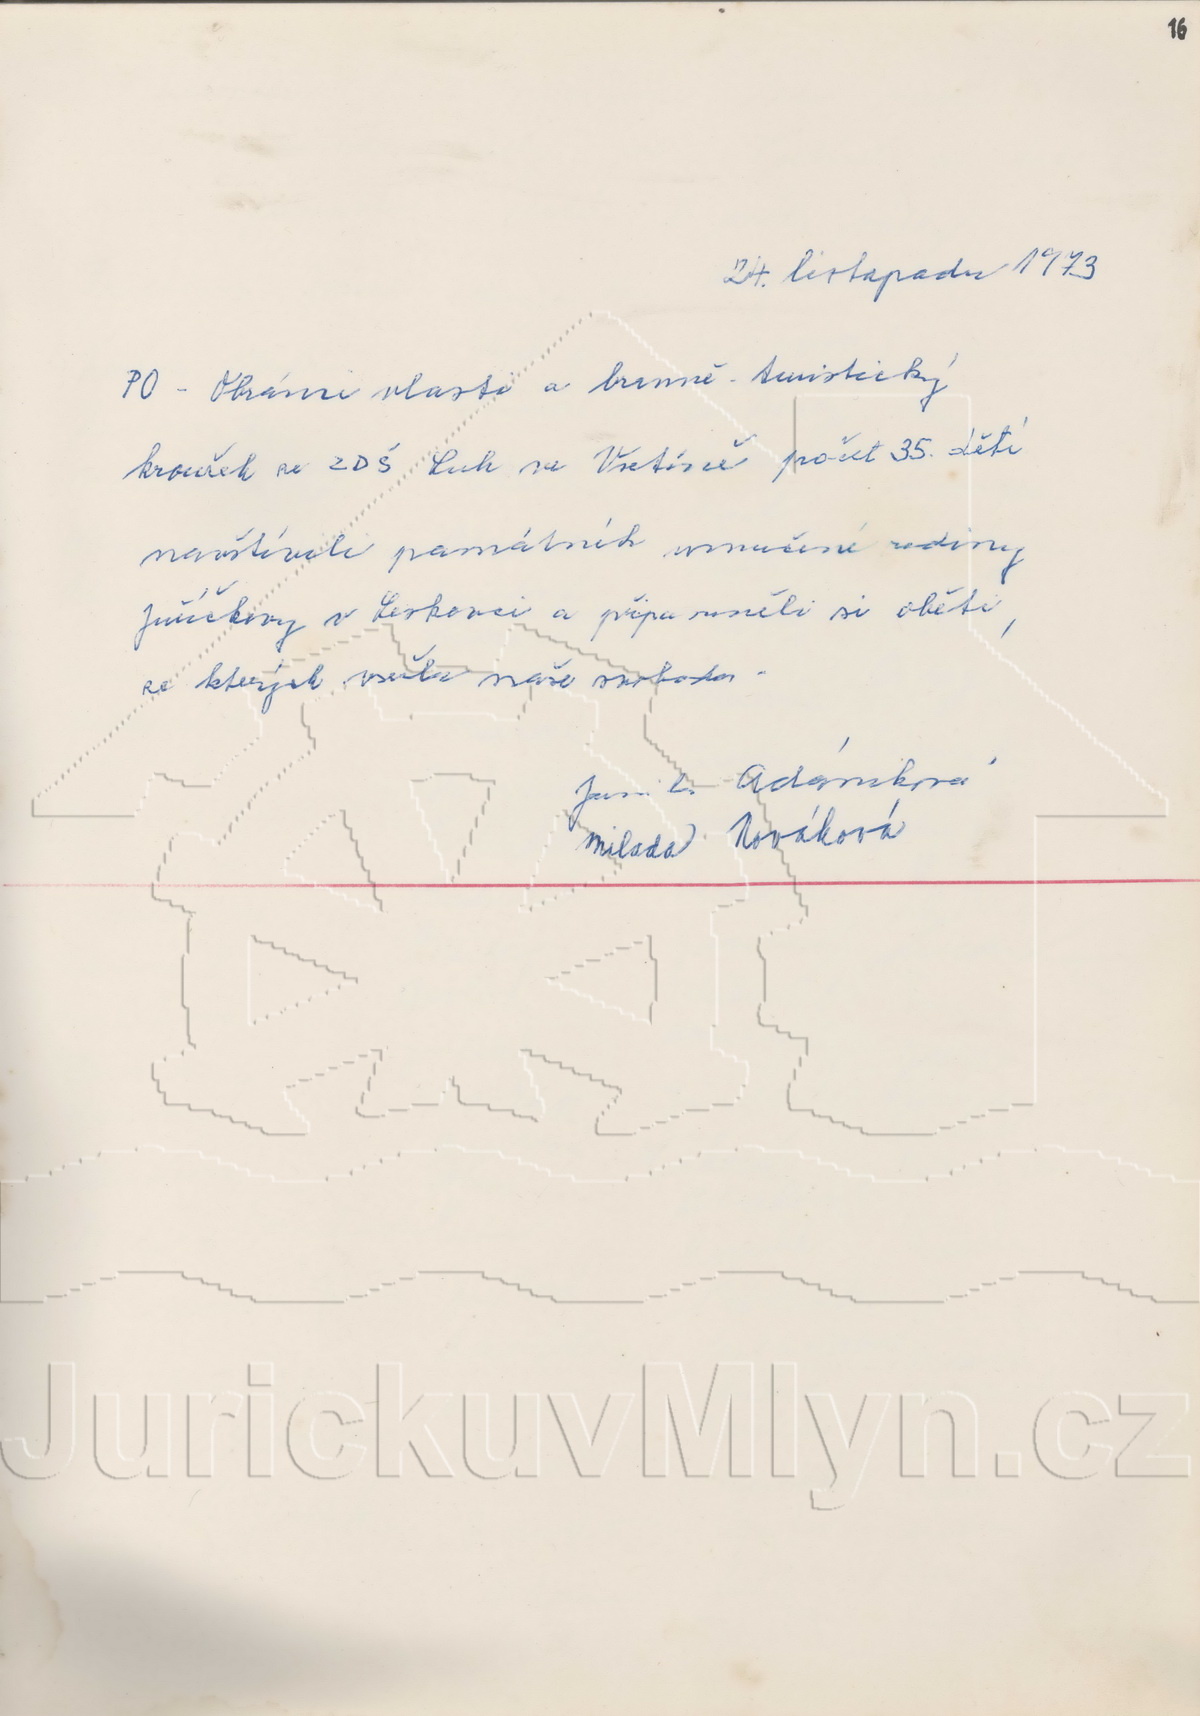 16
24. listopadu 1973
PO - Obránci vlasti a branně-turistický
kroužek ze ZDŠ Luh ve Vsetíně počet 35. dětí
navštívili památník umučené rodiny
Juříčkovy v Leskovci a připomněli si oběti,
ze kterých vzešla naše svoboda.
Adámková
Milada Nováková
JurickuvMlyn.cz